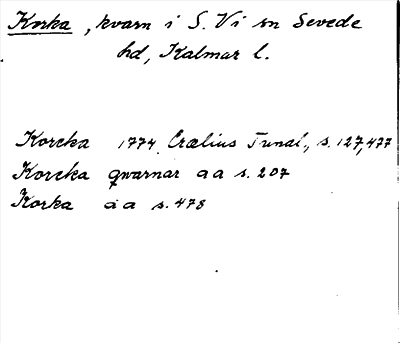 Korka, kvarn i S. Vi sn Sevede
hd, Kalmar l.
Korcka 1774 Crælius Tunal., s. 127, 477
Korcka qwarnar aa s. 207
Korka aa s. 478